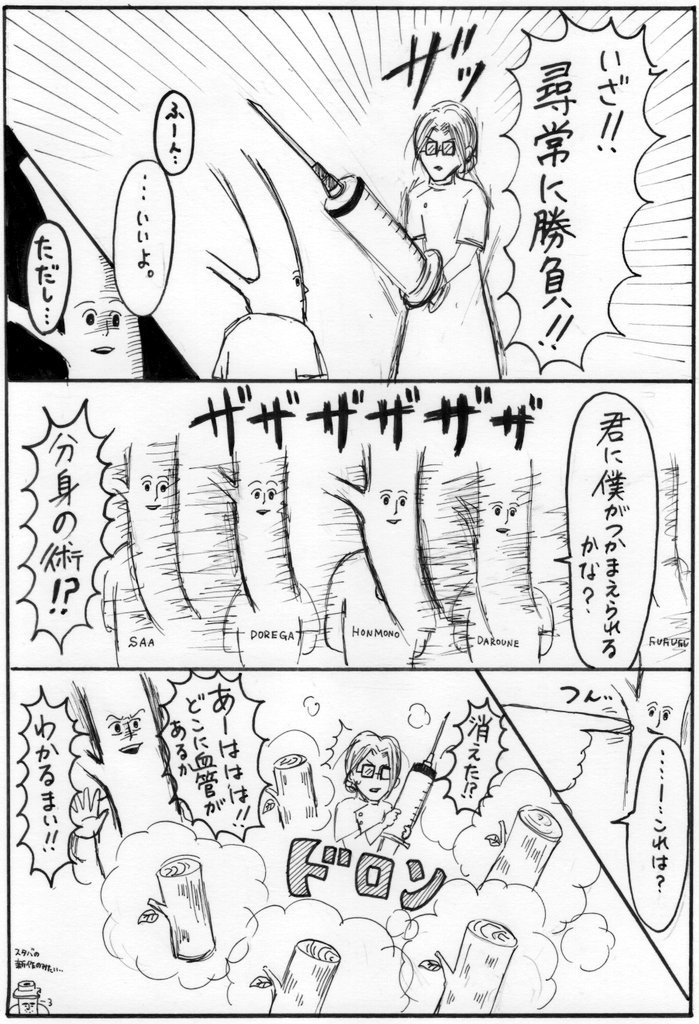 いざ!!
尋常に勝負!!
ザッ
ふーん…
…いいよ。
ただし…
君に僕がつかまえられる
かな?
ザザザザザザ
分身の術!?
SAA
DOREGA
HONMONO
DAROUNE
FUFUFU
つん…
……これは?
消えた!?
ドロン
あーははは!!
どこに血管が
あるか
わかるまい!!
スタバの
新作のみたい…